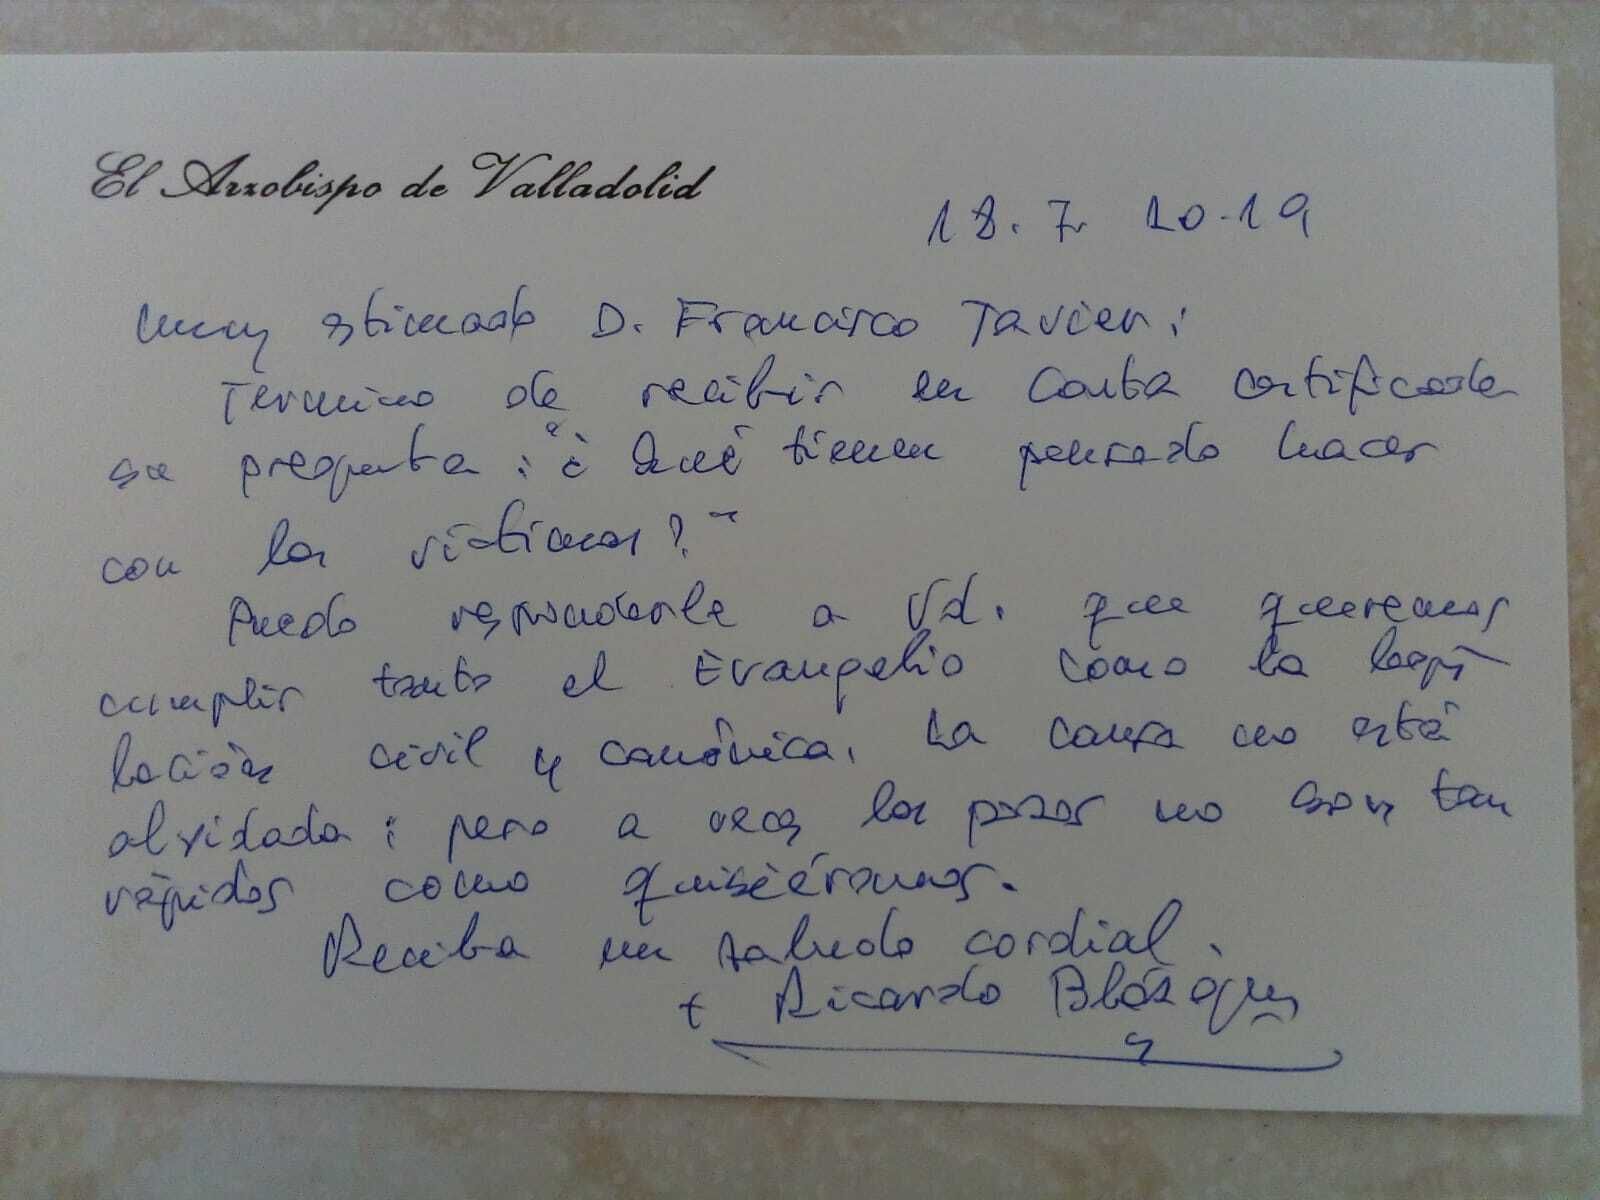 El Arzobispo de Valladolid
18. 7. 2019
Muy estimado D. Francisco Javier:
Termino de recibir en carta certificada
su pregunta: "¿Qué tienen pensado hacer
con las víctimas?"
Puedo responderle a Vd. que queremos
cumplir tanto el Evangelio como la legis-
lación civil y canónica. La causa no está
olvidada; pero a veces los pasos no son tan
rápidos como quisiéramos.
Reciba un saludo cordial.
+ Ricardo Blázquez